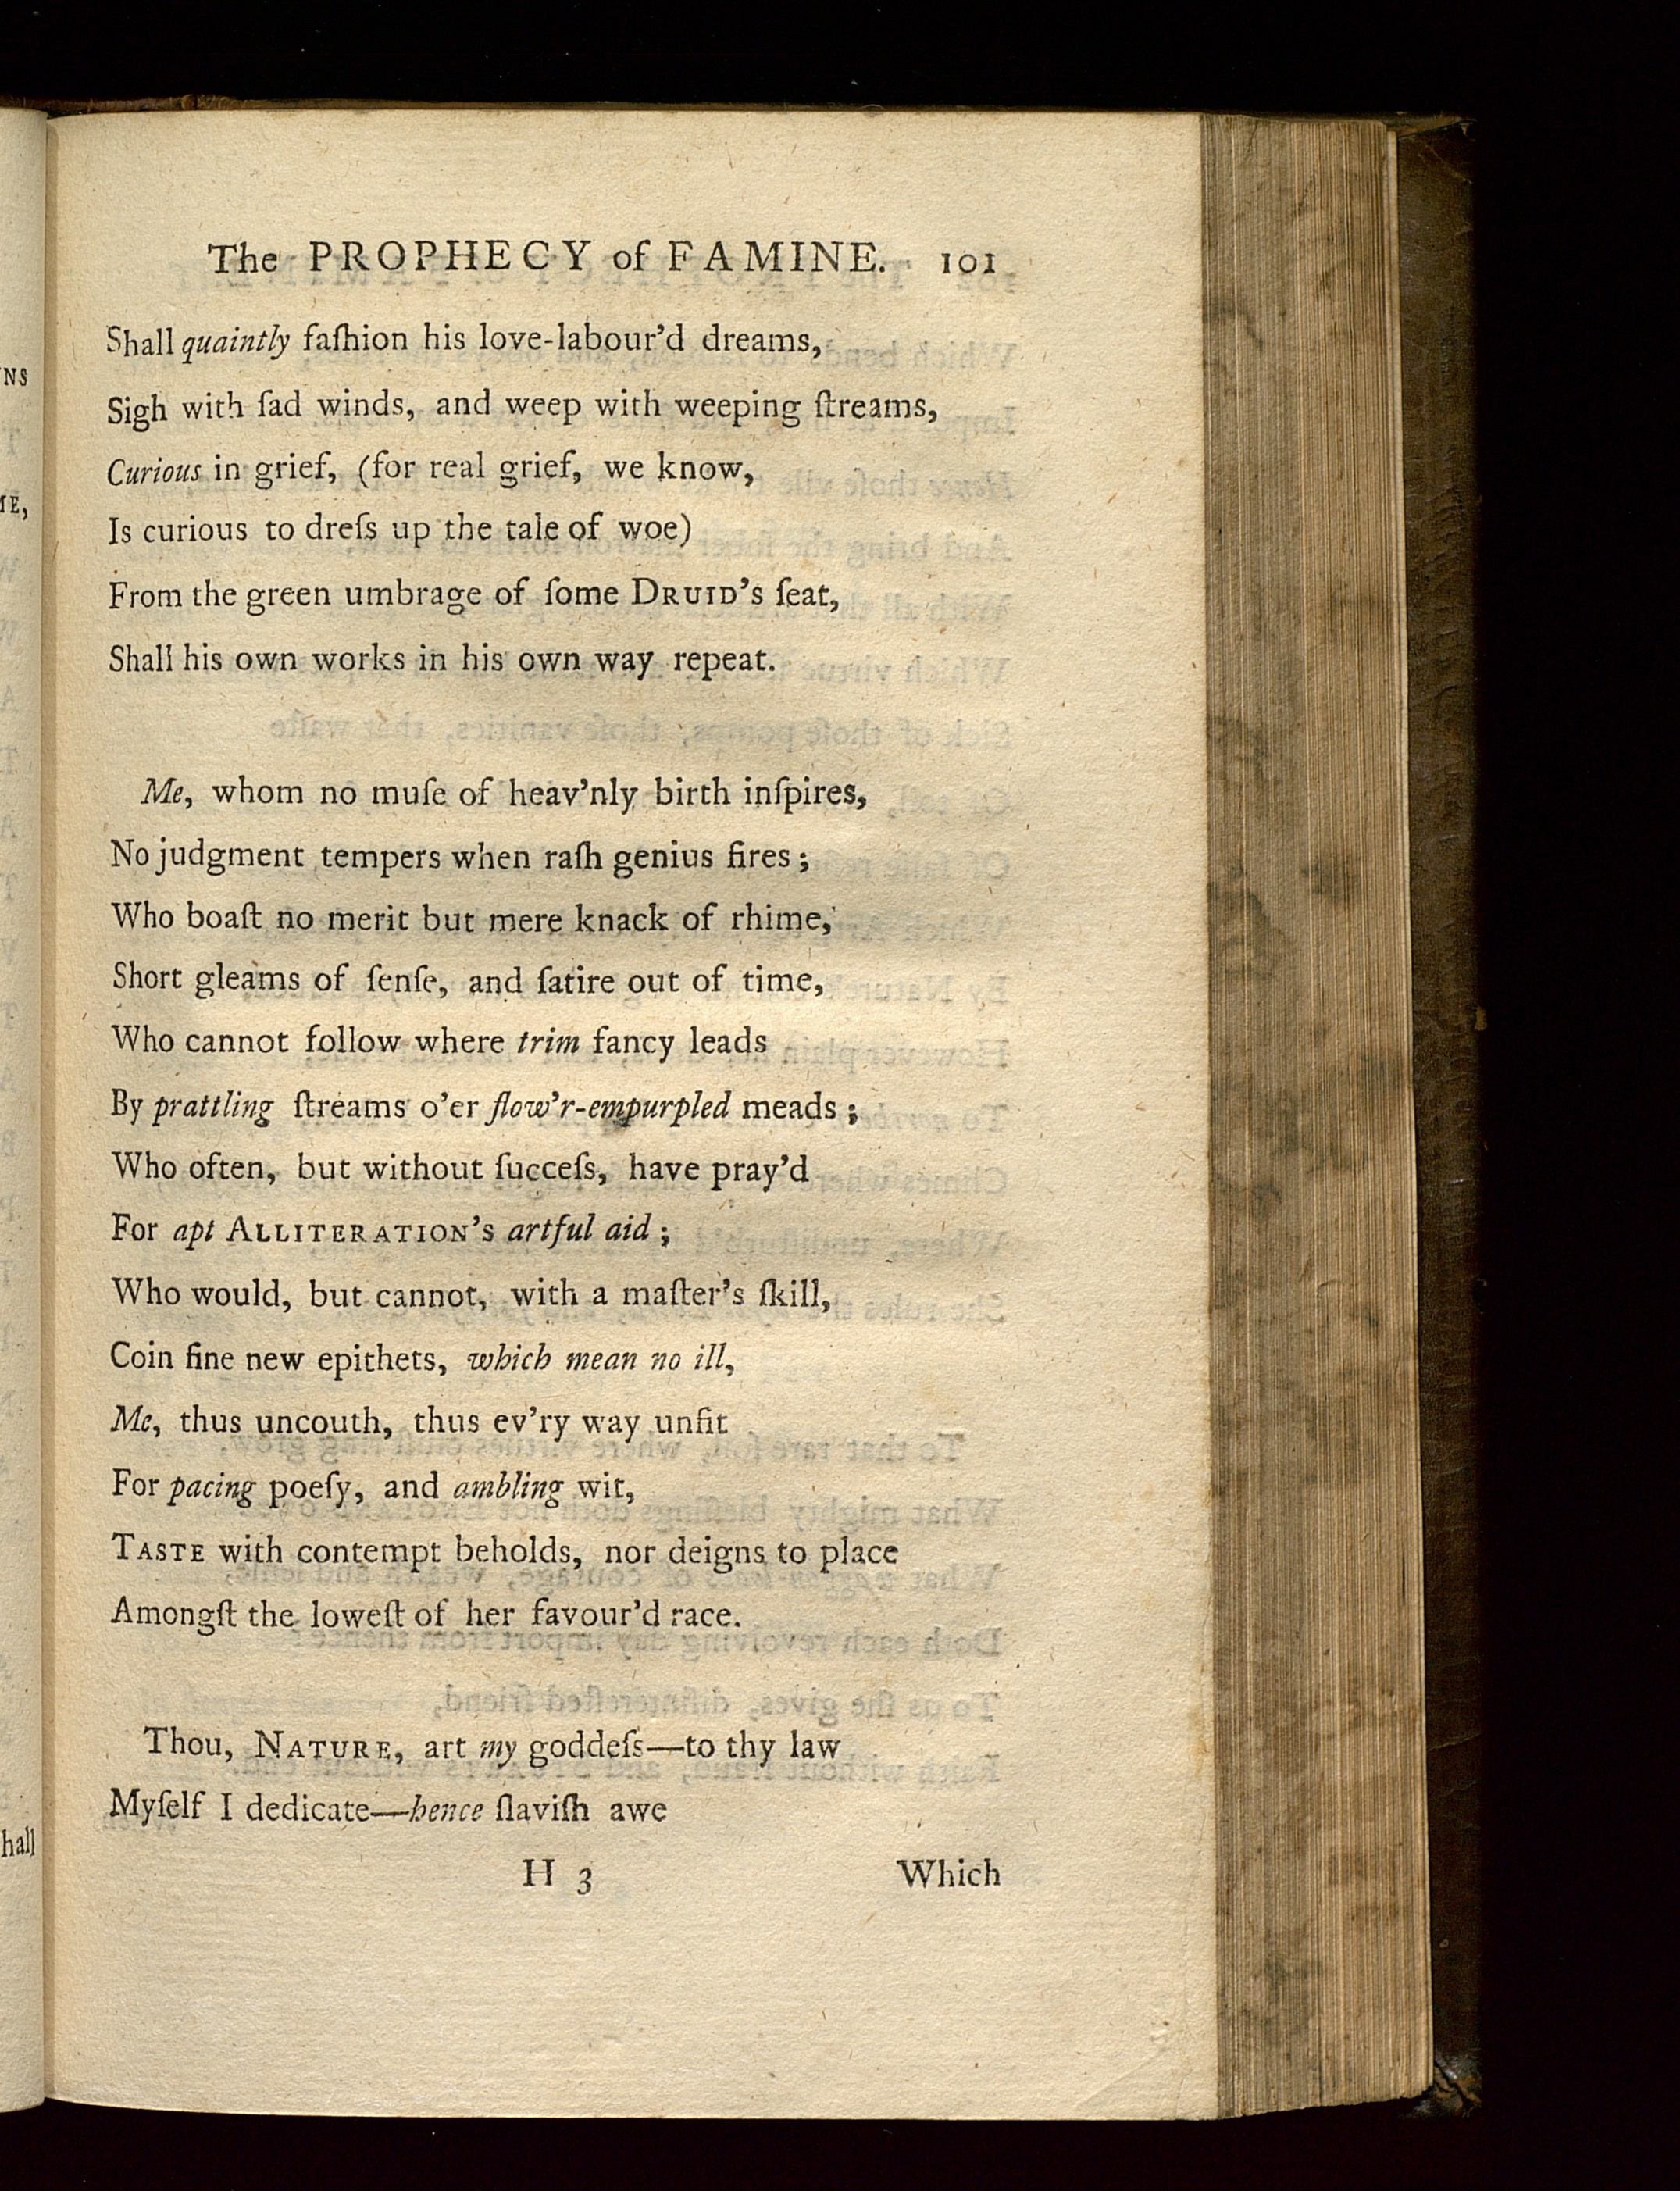 The PROPHECY of FAMINE. 101
Shall quaintly faſhion his love-labour'd dreams,
Sigh with ſad winds, and weep with weeping ſtreams,
Curious in grief, (for real grief, we know,
Is curious to dreſs up the tale of woe)
From the green umbrage of ſome DRUID'S ſeat,
Shall his own works in his own way repeat.
Me, whom no muſe of heav'nly birth inſpires,
No judgment tempers when raſh genius fires;
Who boaſt no merit but mere knack of rhime,
Short gleams of ſenſe, and ſatire out of time,
Who cannot follow where trim fancy leads
By prattling ſtreams o'er flow'r-empurpled meads;
Who often, but without ſucceſs, have pray'd
For apt ALLITERATION'S artful aid;
Who would, but cannot, with a maſter's ſkill,
Coin fine new epithets, which mean no ill,
Me, thus uncouth, thus ev'ry way unfit
For pacing poeſy, and ambling wit,
TASTE with contempt beholds, nor deigns to place
Amongſt the loweſt of her favour'd race.
Thou, NATURE, art my goddeſs—to thy law
Myſelf I dedicate—hence ſlaviſh awe
H 3 Which